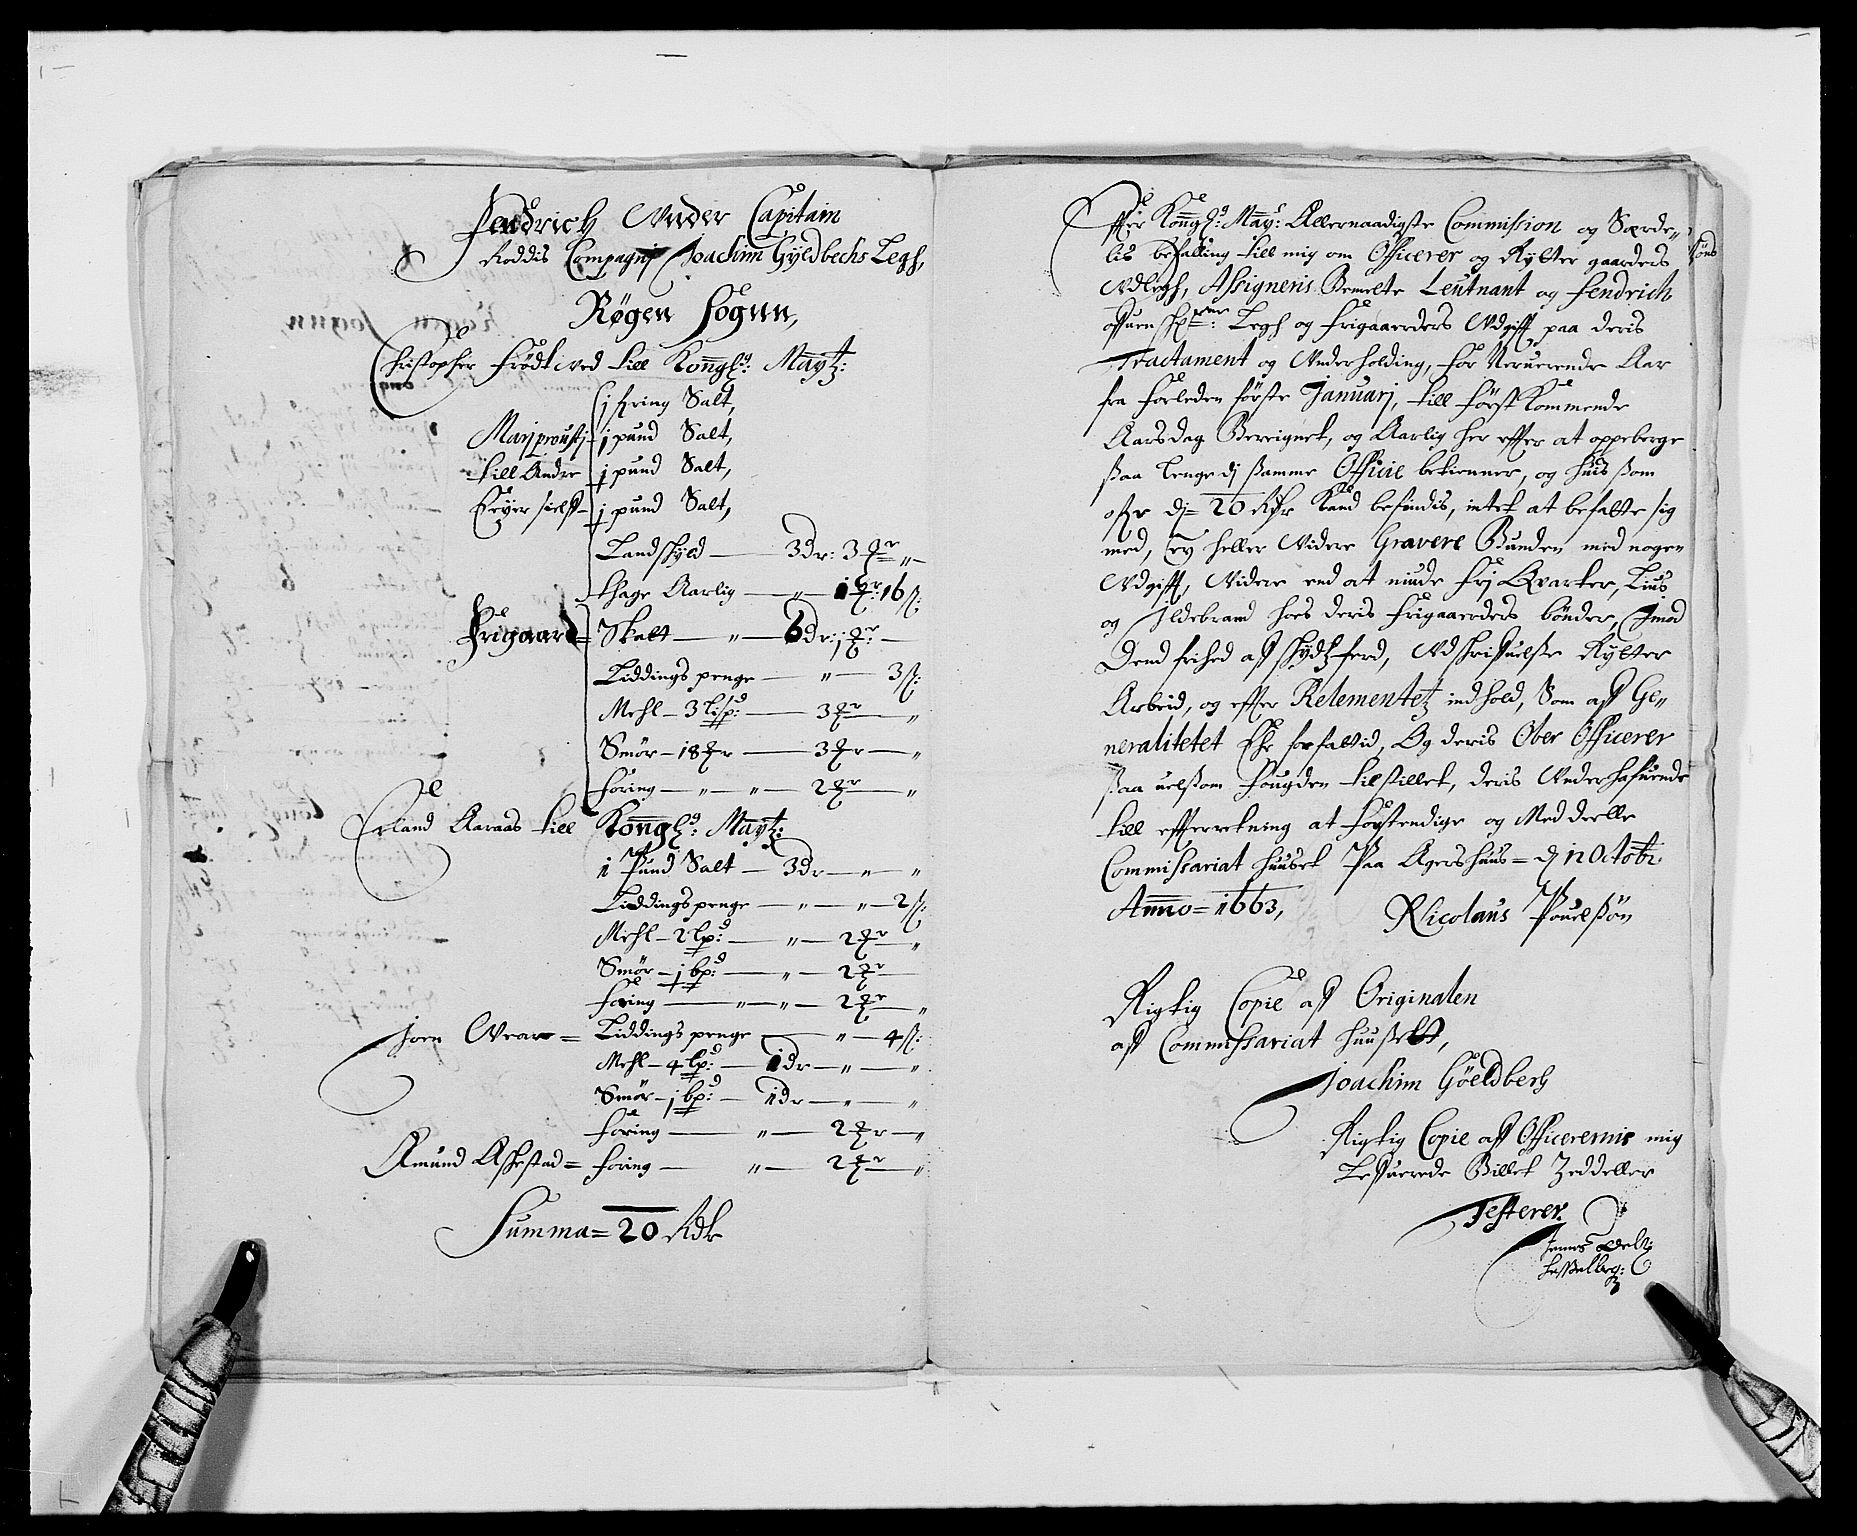 Fendrich Under Capitain
Roddis Compagnj Joachim Gyldbechs Legh,
Røgen Sognn,
Christopher Frødtved till Kongl: Maytz:
j fring Salt,
Marj proustj j pund Salt,
till Andre j pund Salt,
Eeyer sielff j pund Salt,
Landskyld — 3dr: 3 — "
thage Aarlig — " — 1 16 ß:
Frigaard = Skatt — " — 6dr: j —
Liddings penge — " — 3 ß:
Mehl — 3 lispd: — 3 — "
Smør — 18 — 3 — "
foring — " — " — 2 — "
Erland Aaraas till Kongl: Maytz:
1 Pund Salt — 3dr — " — "
Liddings penge — " — " — 2 ß:
Mehl — 2 lpd: — " — 2 — "
Smør — j bpd: — " — 2
foring — " — " — 2 — "
Joen = Liddings penge — " — 4 ß:
Mehl — 4 lpd: — 1dr — " — "
Smør — j bpd: — 1dr — " — "
foring — " — 2 — "
Amund Askestad = foring — " — 2 — "
Summa = 20 Rdr
Effter Kongl: May: Allernaadigste Commission og Særde„
lis befalling till mig om Officerer og Rytter gaarders
Udlegh, Assigneris Bemelte Leutnant og Fendrich
offuen Legh og Frigaarders Udgifft paa deris
Tractament og Underholding, for Neruerende Aar
fra forleden første Januarj, till først Kommende
Aarsdag Bereignet, og Aarlig her effter at oppeberge
saa lenge dj samme Officie betienner, og huis som
offr dj 20 Rdr kand befindis, intet at befatte sig
med, ey heller Videre Gravere Bunden med nogen
Udgifft, Videre end at niude frj Qvarter, Lius
og Ildebrand hoes deris frigaarders bønder, Imod
Dend frihed aff skydtzferd, Udskriffuelse Rytter
Arbeid, og effter Relementetz indhold, Som aff Ge„
neralitetet Ehr forfattid, Og deris Ober Officerer
saa uelsom fougden tilstillet, deris Underhafuende
till effterretning at forstendige og Meddeelle
Commissariat huuset Paa Agershuus = dj 12 Octobr.
Anno = 1663,
Nicolaus Pouelssøn
Rigtig Copie aff Originalen
aff Commissariat huussett,
Joachim Göeldberg
Rigtig Copie aff Officerernis mig
Leffuerede Billet Zeddeller
Testerer.